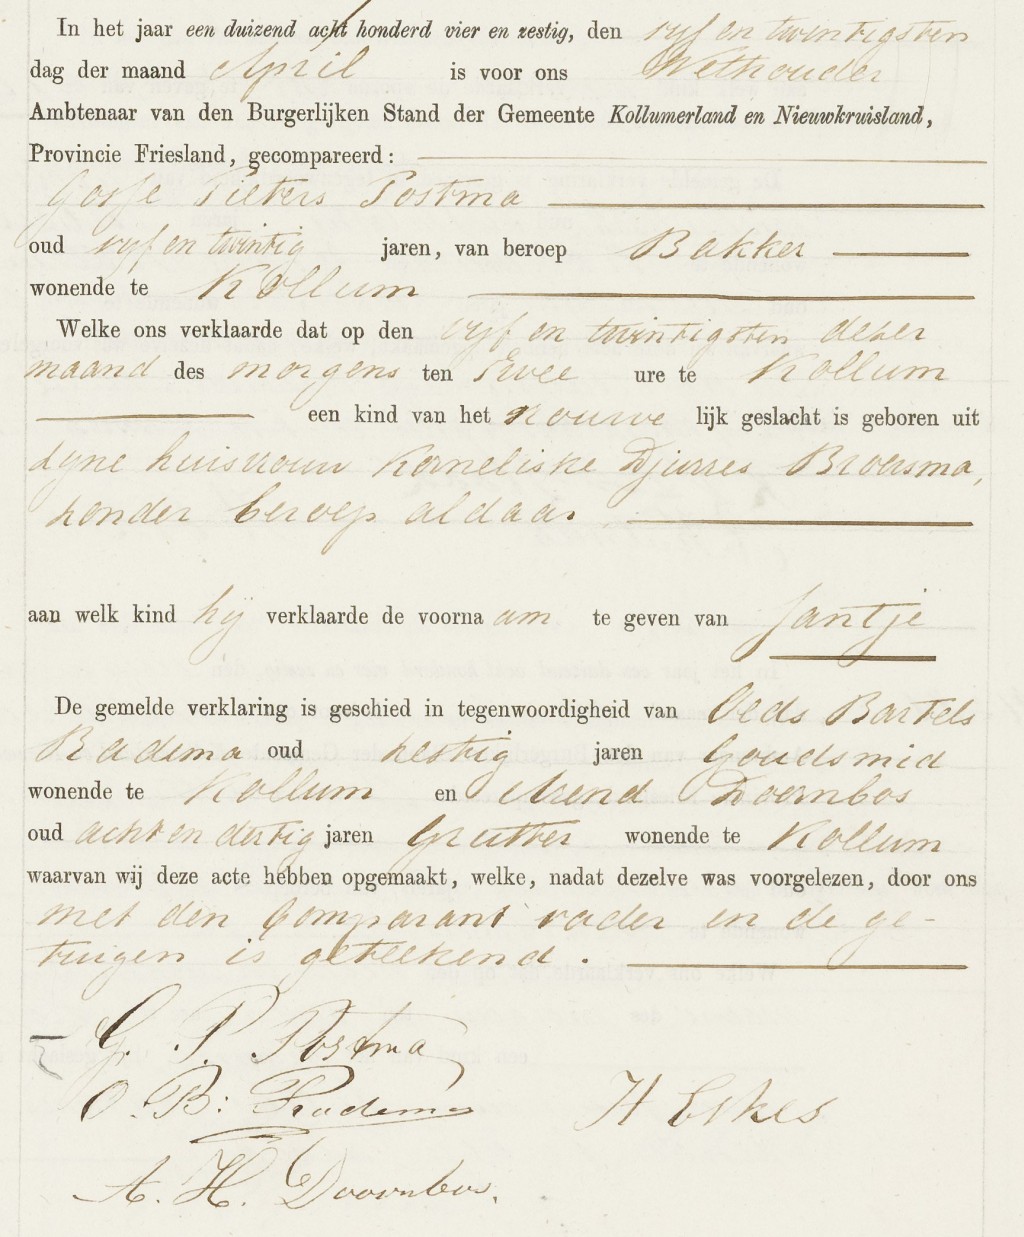 In het jaar een duizend acht honderd vier en zestig, den vyf en twintigsten
dag der maand April is voor ons Wethouder
Ambtenaar van den Burgerlijken Stand der Gemeente Kollumerland en Nieuwkruisland,
Provincie Friesland, gecompareerd:
Gosse Pieters Postma
oud vyf en twintig jaren, van beroep Bakker
wonende te Kollum
Welke ons verklaarde dat op den vyf en twintigsten dezer
maand des morgens ten twee ure te Kollum
een kind van het vrouwe lijk geslacht is geboren uit
zyne huisvrouw Korneliske Djurres Broersma,
zonder beroep aldaar
aan welk kind hij verklaarde de voorna am te geven van Jantje
De gemelde verklaring is geschied in tegenwoordigheid van Oeds Bartels
Radema oud zestig jaren Goudsmid
wonende te Kollum en Arend Doornbos
oud acht en dertig jaren Grutter wonende te Kollum
waarvan wij deze acte hebben opgemaakt, welke, nadat dezelve was voorgelezen, door ons
met den Comparant vader en de ge-
tuigen is geteekend.
G. P. Postma
O. B: Radema
H Eskes
A. H. Doornbos.